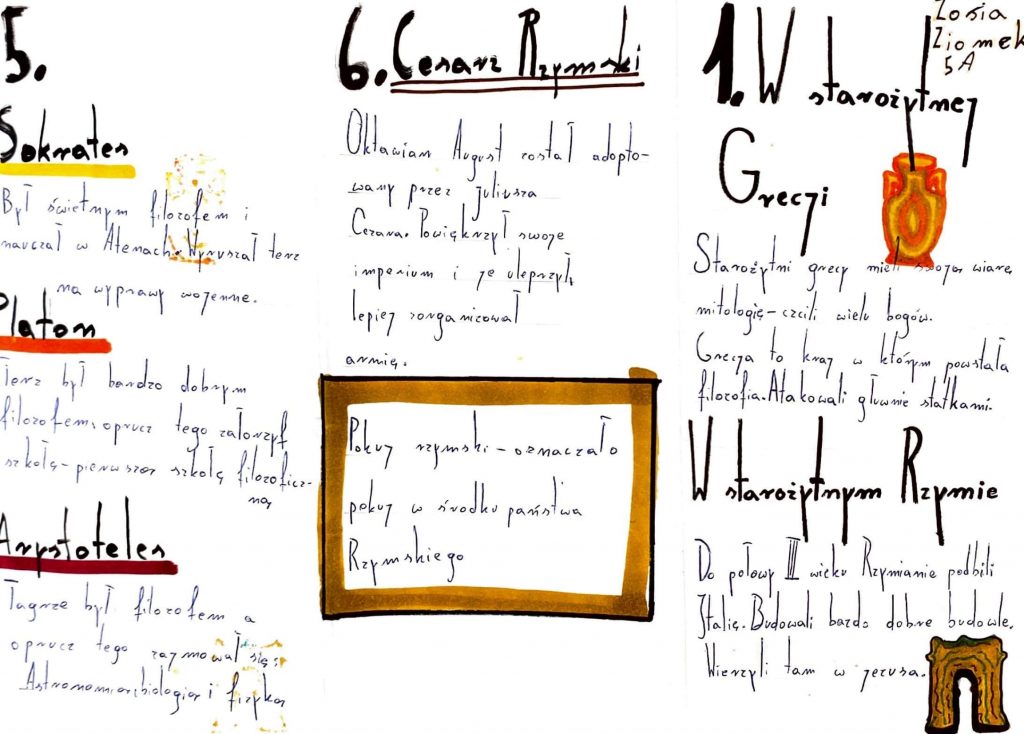 5.
Sokrates
Był świetnym filozofem i
nauczał w Atenach. Wyruszał terz
na wyprawy wojenne.
Platon
Terz był bardzo dobrym
filozofem, oprucz tego załorzył
szkołę - pierwszoą szkołę filozoficz-
ną
Arystoteles
Tagrze był filozofem a
oprucz tego zajmował się:
Astronomią, biologią i fizyką
6. Cesarz Rzymski
Oktawian August został adopto-
wany przez juliusza
Cezara. Powiękrzył swoje
imperium i je uleprzył,
lepiej zorganizował
armię.
Pokuj rzymski - oznaczało
pokuj w środku państwa
Rzymskiego
Zosia
Ziomek
5A
1. W starożytnej
Grecji
Starożytni grecy mieli swoją wiarę
mitologię - czcili wielu bogów.
Grecja to kraj w którym powstała
filozofia. Atakowali głuwnie statkami.
W starożytnym Rzymie
Do połowy III wieku Rzymianie podbili
Italię. Budowali bardo dobre budowle.
Wierzyli tam w jezusa.